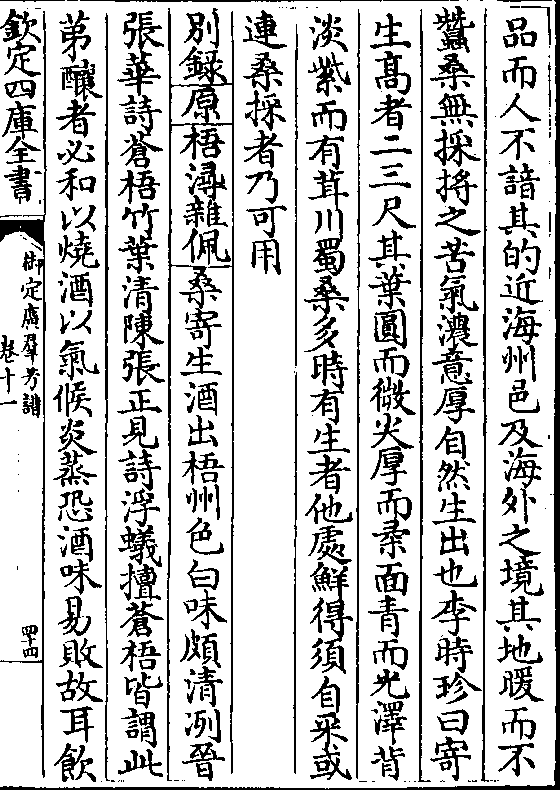 品而人不諳其的近海州邑及海外之境其地暖而不
蠶桑無採捋之苦氣濃意厚自然生出也李時珍曰寄
生高者二三尺其葉圓而微尖厚而柔面青而光澤背
淡紫而有茸川蜀桑多時有生者他處鮮得須自采或
連桑採者乃可用
別錄原梧潯雜佩桑寄生酒出梧州色白味頗清冽晉
張華詩蒼梧竹葉清陳張正見詩浮蟻擅蒼梧皆謂此
苐釀者必和以燒酒以氣候炎蒸恐酒味易敗故耳飲
欽定四庫全書
御定廣羣芳譜
卷十一
四十四